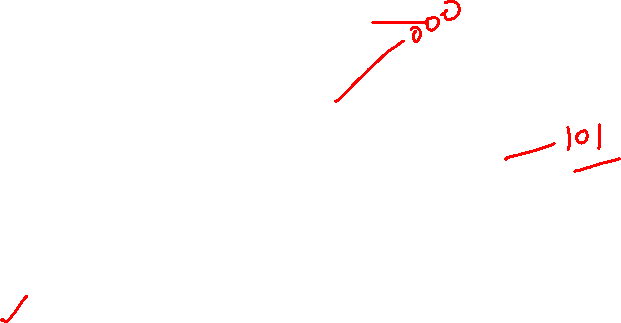 000
101